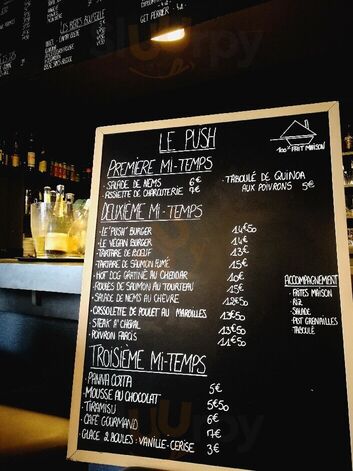 LES BIÈRES BOUTEILLE
GET PERRIER
LE PUSH
100% FAIT MAISON
PREMIÈRE MI-TEMPS
- SALADE DE NEMS 6€
- ASSIETTE DE CHARCUTERIE 7€
- TABOULÉ DE QUINOA
AUX POIVRONS 5€
DEUXIÈME MI-TEMPS
- LE "PUSH" BURGER 14€50
- LE VEGAN BURGER 14€
- TARTARE DE BOEUF 13€
- TARTARE DE SAUMON FUMÉ 15€
- HOT DOG GRATINÉ AU CHEDDAR 10€
- ROULÉS DE SAUMON AU TOURTEAU 15€
- SALADE DE NEMS AU CHÈVRE 12€50
- CASSOLETTE DE POULET AU MAROILLES 13€50
- STEAK À CHEVAL 13€50
- POIVRON FARCIS 11€50
ACCOMPAGNEMENT
- FRITES MAISON
- RIZ
- SALADE
- POT GRENAILLES
- TABOULÉ
TROISIÈME MI-TEMPS
- PANNA COTTA 5€
- MOUSSE AU CHOCOLAT 5€50
- TIRAMISU 6€
- CAFÉ GOURMAND 7€
- GLACE 2 BOULES : VANILLE - CERISE 3€